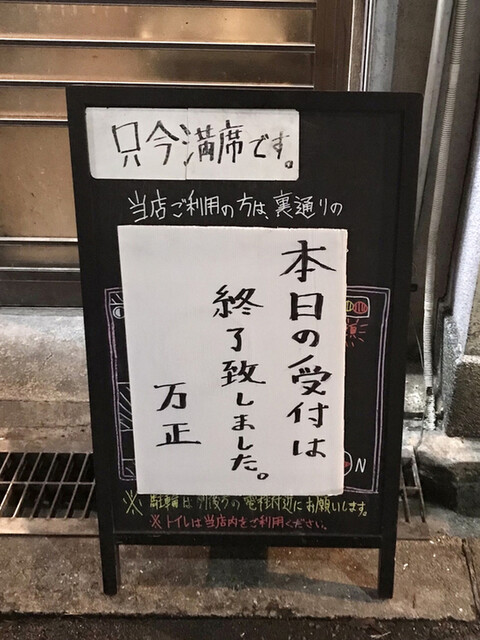 只今満席です。
当店ご利用の方は、裏通りの
本日の受付は
終了致しました。
万正
N
※ 駐輪は 後ろの 電柱付近にお願いします。
※トイレは当店内をご利用ください。